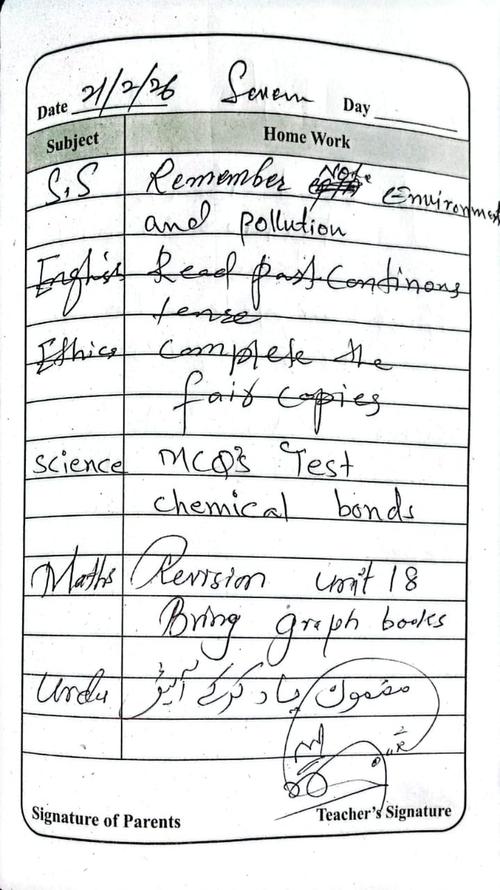 Date 21/2/26 Seven Day
Subject Home Work
S.S Remember Note Environment
and pollution
English Read past Continous
tense
Ethics Complete the
fair copies
science MCQ's Test
chemical bonds
Maths Revision unit 18
Bring graph books
Urdu مضمون یاد کرکے آئیں
Signature of Parents Teacher's Signature